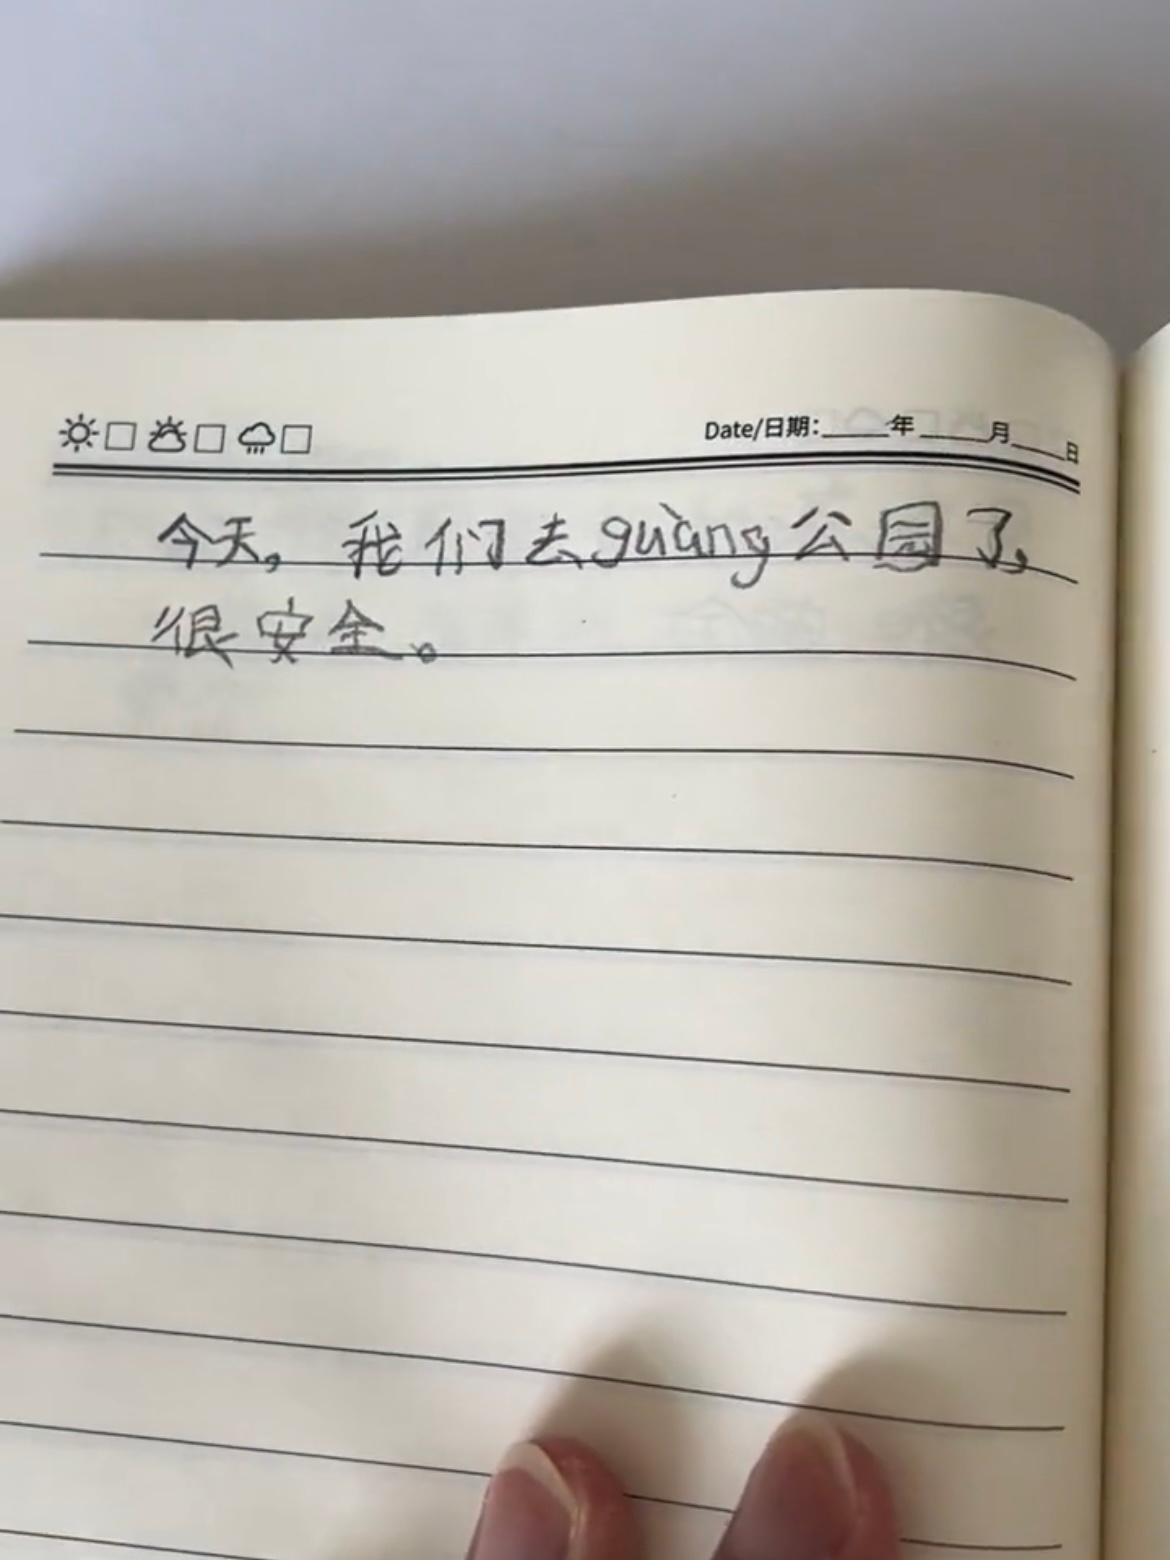 Date/日期：_____年_____月____日
今天，我们去guàng公园了，
很安全。